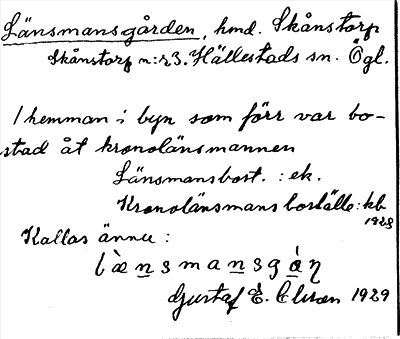 Länsmansgården, hmd. Skånstorp
Skånstorp n:r 3. Hällestads sn. Ögl.
1 hemman i byn som förr var bo-
stad åt kronolänsmannen
Länsmansbost. : ek.
Kronolänsmansboställe : kb.
1928
Kallas ännu :
læ̀nsmansgå̀ɳ
Gustaf E. 1929